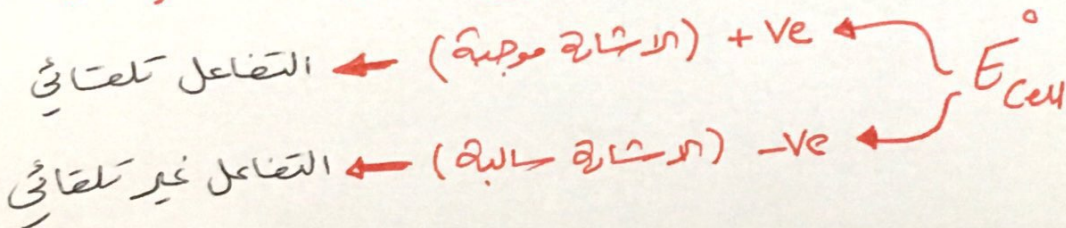 E°Cell
+ve (الاشارة موجبة) ← التفاعل تلقائي
-ve (الاشارة سالبة) ← التفاعل غير تلقائي